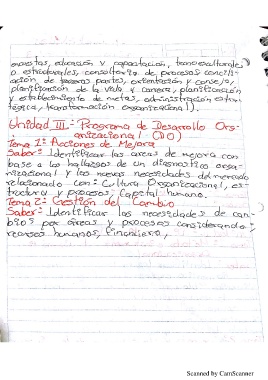 encuestas, educación y capacitación, transculturales
o estructurales, consultoría de procesos concili-
ación de terceras partes, orientación y consejo,
planificación de la vida y carrera, planificación
y establecimiento de metas, administración estra-
tégica, transformación organizacional).
Unidad III: Programa de Desarrollo Org-
anizacional (DO)
Tema 1: Acciones de Mejora
Saber: Identificar las areas de mejora con
base a los hallazgos de un diagnostico orga-
nizacional y las nuevas necesidades del mercado
relacionado con: Cultura Organizacional, es-
tructura y procesos, Capital humano.
Tema 2: Gestión del Cambio
Saber: Identificar las necesidades de cam-
bios por áreas y procesos considerando:
recursos humanos, Financiera,
Scanned by CamScanner